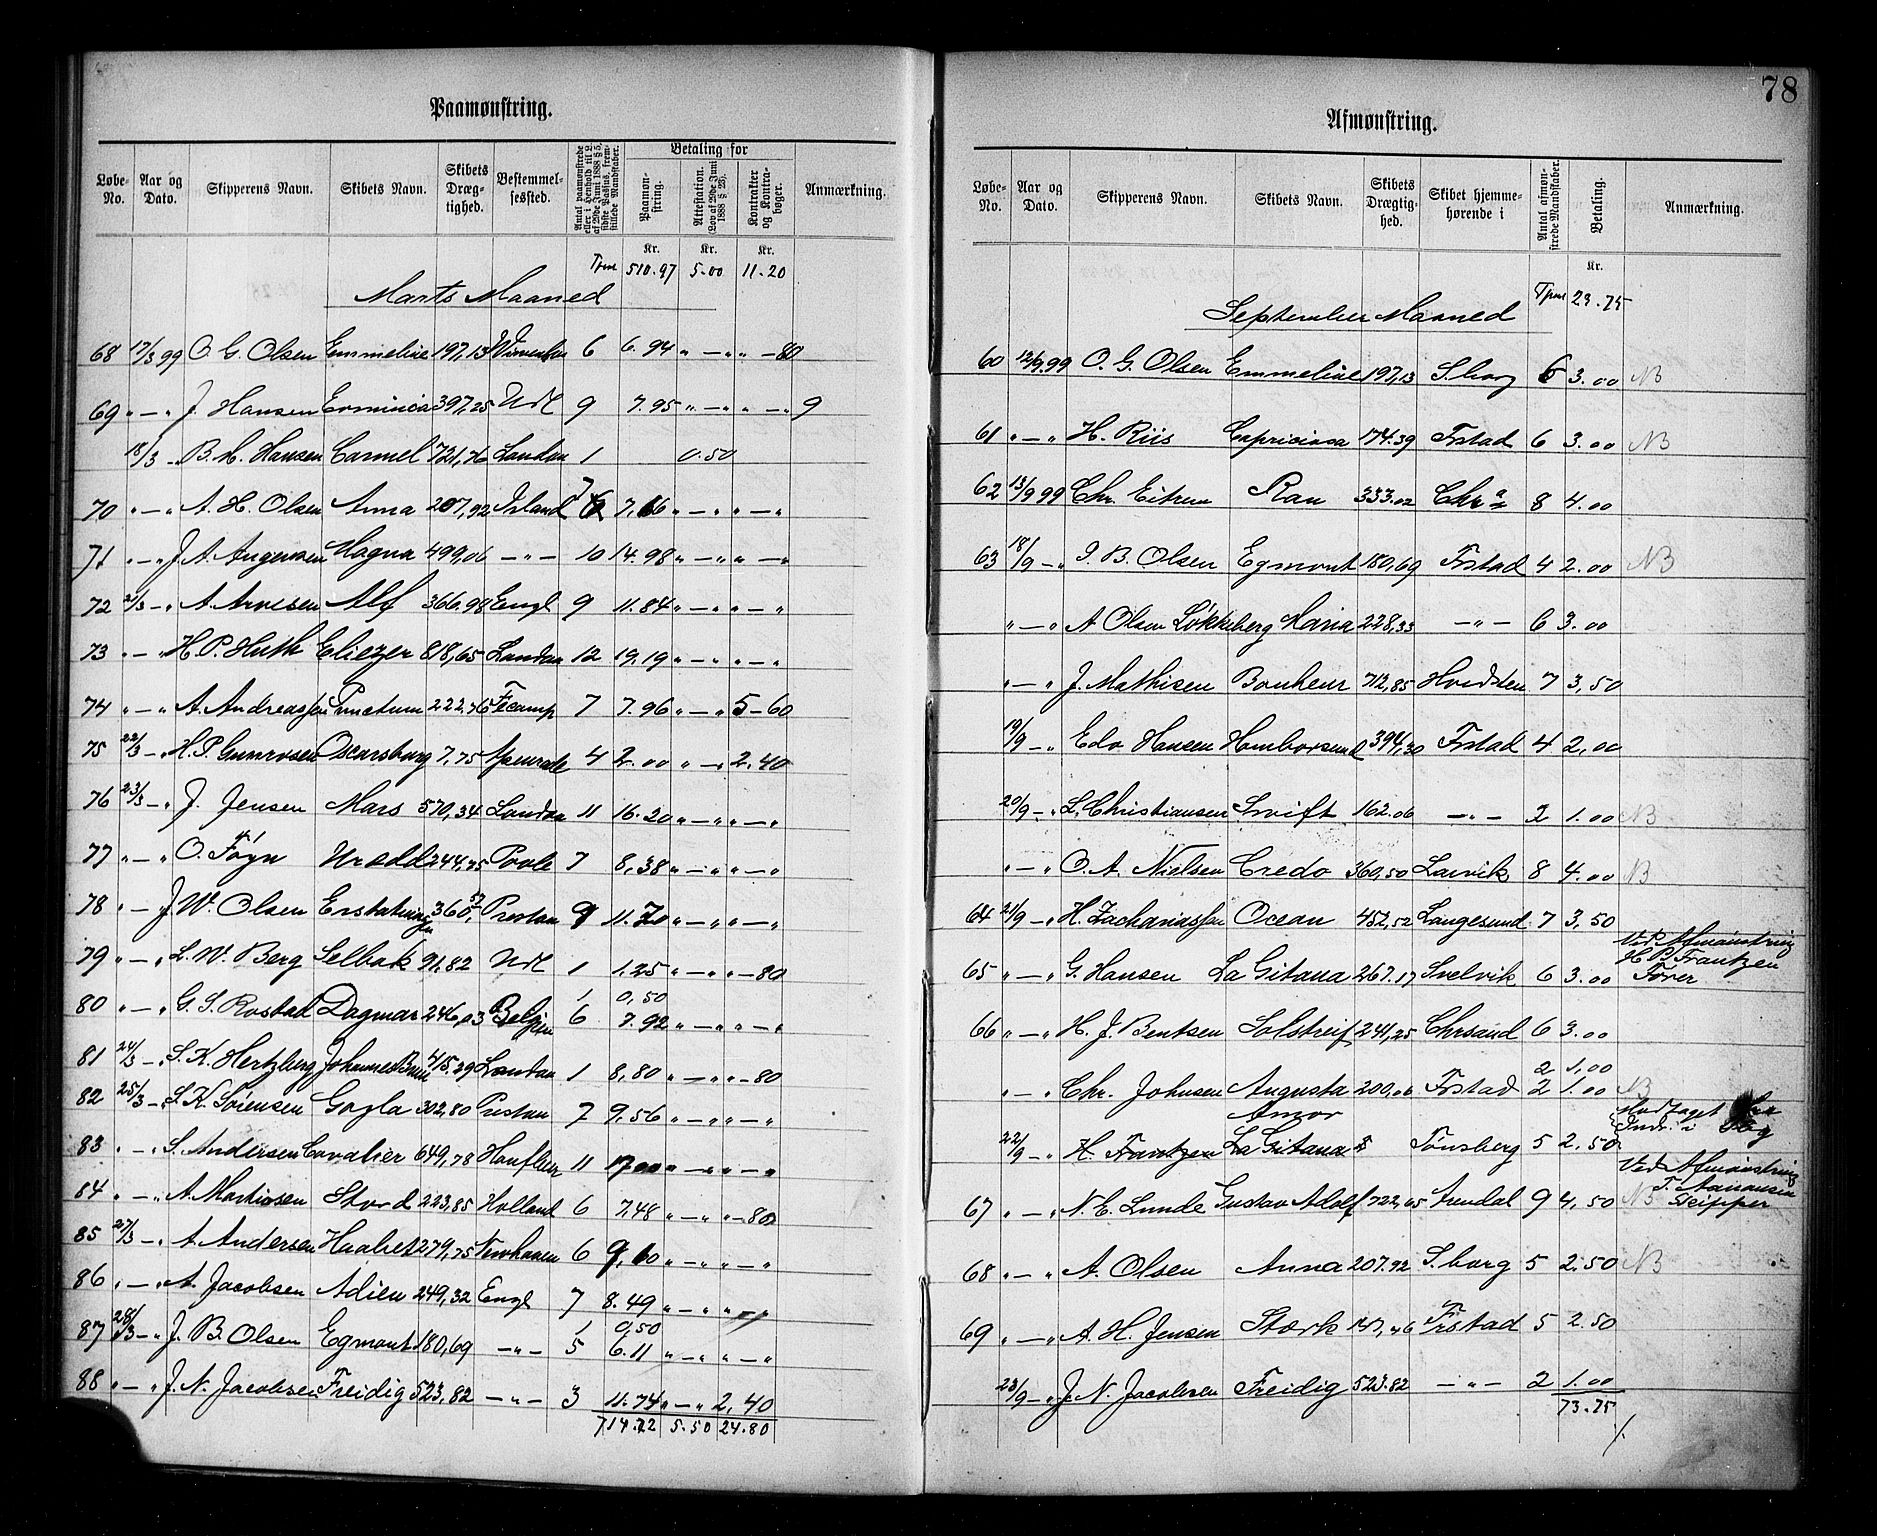 78
Paamønstring.
Løbe-No. Aar og Dato. Skipperens Navn. Skibets Navn. Skibets Dræg-tighed. Bestemmel-sessted. Antal paamønstrede eller i Henhold til L. af 29de Juni 1888 § 5, sidste Passus, frem-stillede Mandskaber. Betaling for Paamøn-string. Attestation. (Lov af 29de Juni 1888 § 23). Kontrakter og Kontra-bøger. Anmærkning.
Kr. Kr. Kr.
Tpm 510.97 5.00 11.20
Marts Maaned
68 17/3 99 O. G. Olsen Emmeline 197,13 6 6.94 " — " " — 80
69 " — " J. Hansen Erminia 397,25 Udl 9 7.95 " — " " — " 9
18/3 — " B. M. Hansen Carmel 721,76 London 1 0.50
70 " — " A. H. Olsen Anna 207,92 Irland 7 7,66 " — " " — "
71 " — " J. A. Augensen Magna 499,06 — " — 10 14.98 " — " " — "
72 21/3 — " A. Arnesen Alf 366,98 Engl 9 11.84 " — " " — "
73 " — " H. P. Huth Eliezer 818,65 London 12 19,19 " — " " — "
74 " — " A. Andreassen Punctum 222,76 Fécamp 7 7.96 " — " 5 — 60
75 22/3 — " H. P. Gunrosen Oscarsborg 7,75 Apenrade 4 2.00 " — " 2.40
76 23/3 — " J. Jensen Mars 570,34 London 11 16.20 " — " " — "
77 " — " O. Føyn Urædd 244,75 Poole 7 8,38 " — " " — "
78 " — " J. W. Olsen Erstatningen 360,52 Preston 9 11.70 " — " " — "
79 " — " L. W. Berg Selbak 91,82 Udl 1 1,25 " — " " — 80
1 0,50
80 " — " G. S. Rostad Dagmar 246,03 Belgien 6 7.92 " — " " — "
81 24/3 — " S. K. Hertzberg Johannes Bruun 415.29 London 1 8,80 " — " " — 80
82 25/3 — " S. K. Sörensen Gogla 302,80 Preston 7 9,56 " — " " — "
83 " — " S. Andersen Cavalier 649,78 Honfleur 11 17,00 " — " " — "
84 " — " A. Martinsen Stord 223,85 Holland 6 7,48 " — " " — 80
85 27/3 — " A. Andersen Haabet 279,75 Newhaven 6 9,60 " — " " — "
86 " — " A. Jacobsen Adieu 249,32 Engl 7 8.49 " — " " — "
1 0,50
87 28/3 — " J. B. Olsen Egmont 180,69 — " — 5 6.11 " — " " — "
88 " — " J. N. Jacobsen Freidig 523,82 — " — 3 11.74 " — " 2,40
714.72 5.50 24.80
Afmønstring.
Løbe-No. Aar og Dato. Skipperens Navn. Skibets Navn. Skibets Drægtig-hed. Skibet hjemme-hørende i Antal afmøn-strede Mandskaber. Betaling. Anmærkning.
Kr.
Tpm 23.75
September Maaned
60 12/9.99 O. G. Olsen Emmeline 197,13 S.borg 6 3.00 NB
61 " — " H. Riis Capriciosa 174.39 Frstad 6 3.00 NB
62 13/9 99 Chr. Eitrem Ran 333.02 Chra 8 4.00
63 18/9 — " I. B. Olsen Egmont 180,69 Frstad 4 2.00 NB
" — " A Olsen Løkkeberg Maria 228,33 — " — 6 3.00
" — " J. Mathisen Bonheur 712,85 Hvidsten 7 3,50
19/9 — " Edv Hansen Homborsund 394,20 Frstad 4 2,00
20/9 — " L. Christiansen Swift 162.06 — " — 2 1.00 NB
" — " O. A. Nielsen Credo 360,50 Larvik 8 4.00 NB
64 21/9 — " H. Zachariassen Ocean 452,52 Langesund 7 3,50
Ved Afmønstring
H. P. Frantzen
65 " — " G. Hansen La Gitana 267.17 Svelvik 6 3.00 Fører
66 " — " H. J. Bentsen Solstreif 241,25 Chrsand 6 3.00
2 1,00
" — " Chr. Johnsen Augusta 200,06 Frstad 2 1.00 NB
Amor Modtaget
22/9 — " H. Frantzen La Gitana Tønsberg 5 2.50 Indr. i
Ved Afmønstring
67 " — " N. E. Lunde Gustav Adolf 722,65 Arendal 9 4,50 NB Skipper
68 " — " A. Olsen Anna 207.92 S.borg 5 2.50 NB
69 " — " A. H. Jensen Stærk Frstad 5 2.50
23/9 — " J. N. Jacobsen Freidig 523.82 — " — 2 1.00
73.75